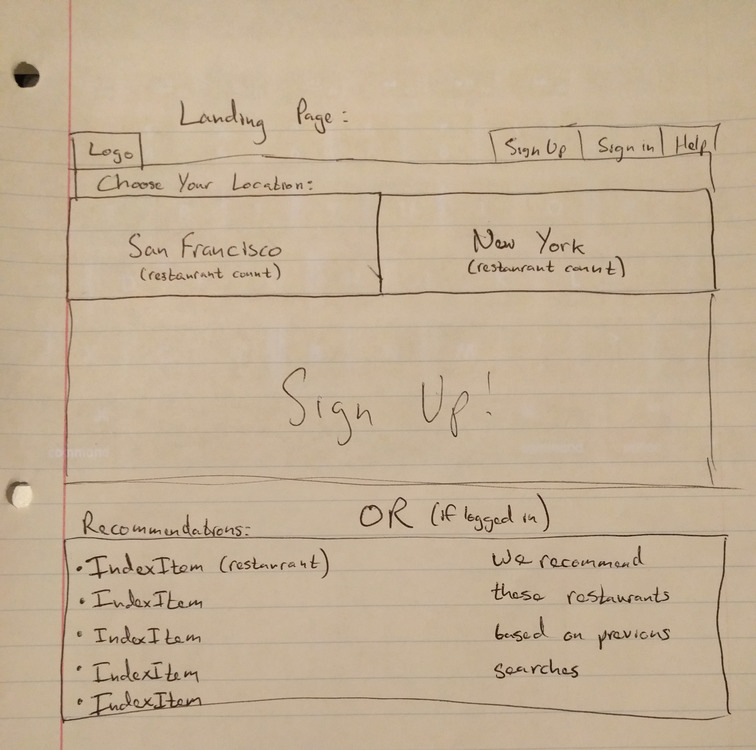 Landing Page:
Logo
Sign Up
Sign in
Help
Choose Your Location:
San Francisco
(restaurant count)
New York
(restaurant count)
Sign Up!
OR (if logged in)
Recommendations:
• IndexItem (restaurant)
• IndexItem
• IndexItem
• IndexItem
• IndexItem
We recommend
these restaurants
based on previous
searches